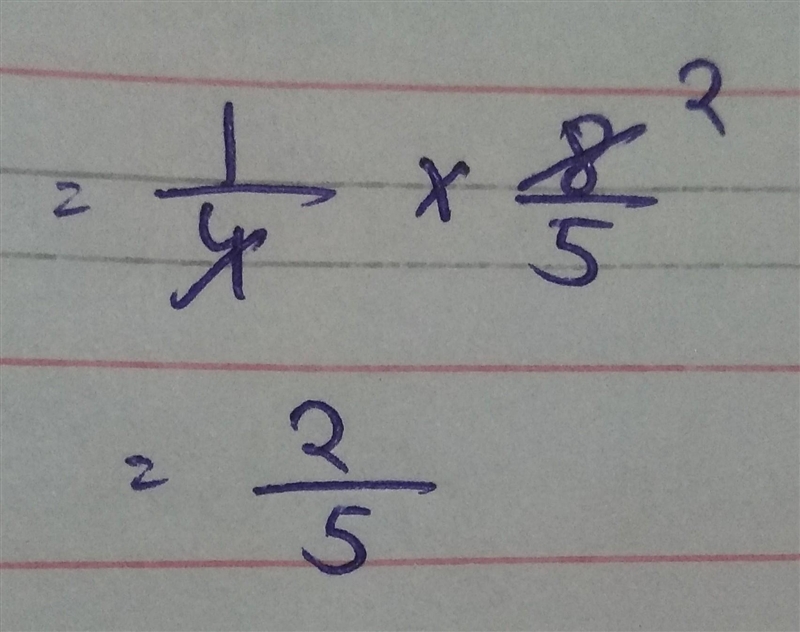 = 1/4 × 8/5 2
= 2/5